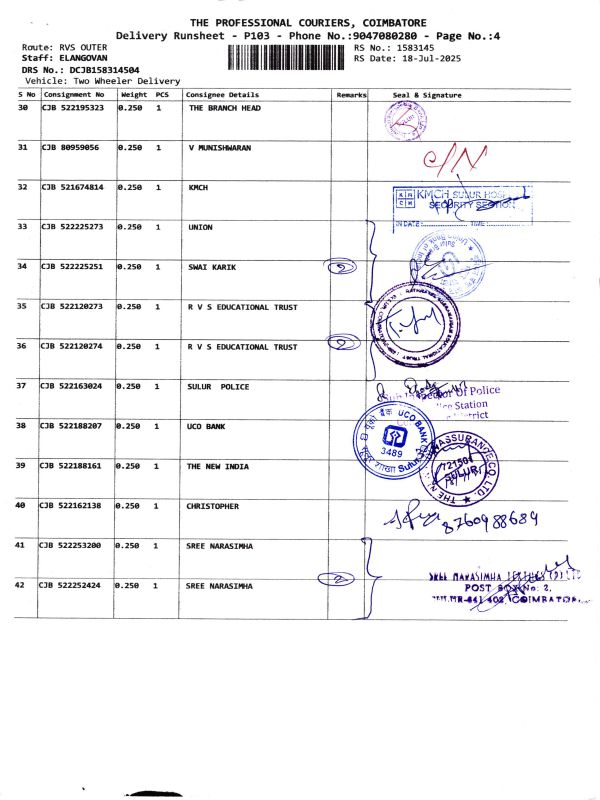 THE PROFESSIONAL COURIERS, COIMBATORE
Delivery Runsheet - P103 - Phone No.:9047080280 - Page No.:4
Route: RVS OUTER RS No.: 1583145
Staff: ELANGOVAN RS Date: 18-Jul-2025
DRS No.: DCJB158314504
Vehicle: Two Wheeler Delivery
S No Consignment No Weight PCS Consignee Details Remarks Seal & Signature
30 CJB 522195323 0.250 1 THE BRANCH HEAD
31 CJB 80959056 0.250 1 V MUNISHWARAN C/N
32 CJB 521674814 0.250 1 KMCH
KMCH SULUR HOSPITAL
SECURITY SECTION
IN DATE: TIME:
33 CJB 522225273 0.250 1 UNION
34 CJB 522225251 0.250 1 SWAI KARIK 2
35 CJB 522120273 0.250 1 R V S EDUCATIONAL TRUST
36 CJB 522120274 0.250 1 R V S EDUCATIONAL TRUST 2
37 CJB 522163024 0.250 1 SULUR POLICE
Sub Inspector Of Police
Station
38 CJB 522188207 0.250 1 UCO BANK
UCO BANK
3489
Sulur
39 CJB 522188161 0.250 1 THE NEW INDIA
ASSURANCE CO. LTD.
721501
SULUR
40 CJB 522162138 0.250 1 CHRISTOPHER 8760988689
41 CJB 522253200 0.250 1 SREE NARASIMHA
42 CJB 522252424 0.250 1 SREE NARASIMHA 2
SREE NARASIMHA TEXTILES (P) LTD
POST BOX No: 2,
641 402, COIMBATORE